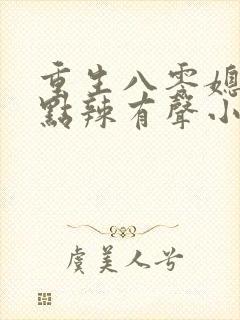 重生八零媳
點辣有聲小
虞美人兮